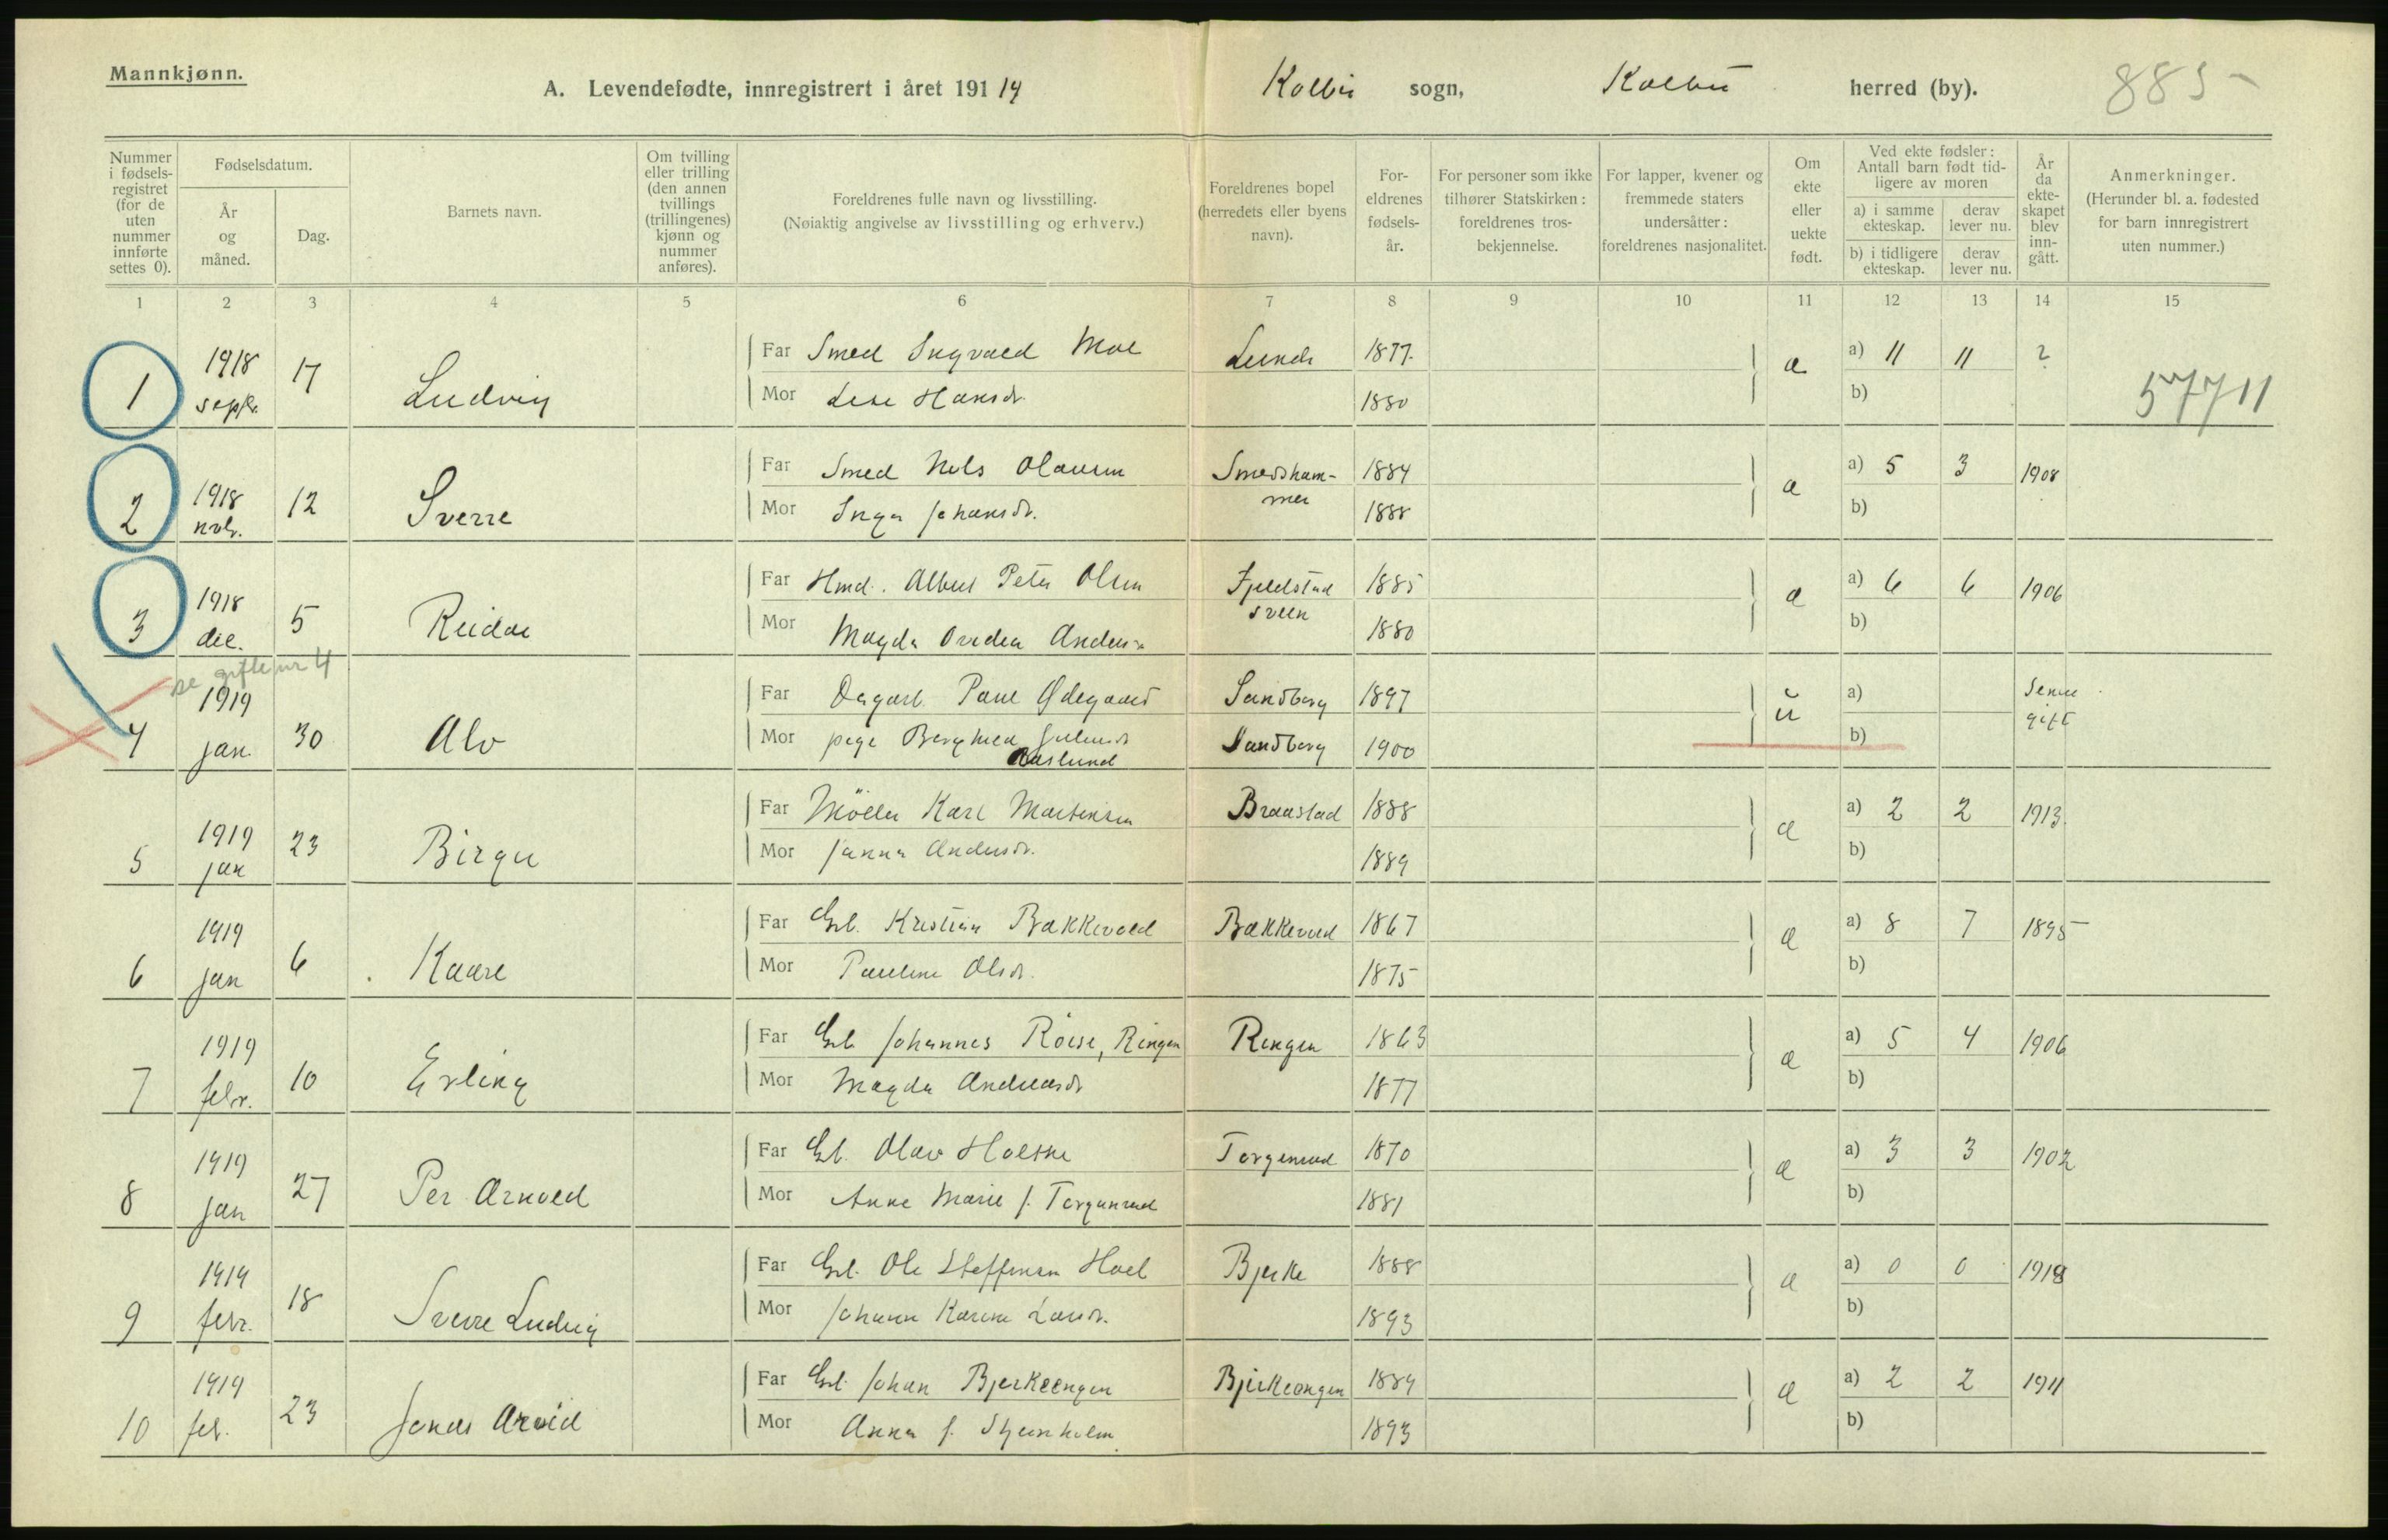 Mannkjønn.
A. Levendefødte, innregistrert i året 191 19 Kolbu sogn, Kolbu herred (by). 885-
Nummer i fødsels-registret (for de uten nummer innførte settes 0).
Fødselsdatum.
År og måned.
Dag.
Barnets navn.
Om tvilling eller trilling (den annen tvillings (trillingenes) kjønn og nummer anføres).
Foreldrenes fulle navn og livsstilling.
(Nøiaktig angivelse av livsstilling og erhverv.)
Foreldrenes bopel (herredets eller byens navn).
For-eldrenes fødsels-år.
For personer som ikke tilhører Statskirken: foreldrenes tros-bekjennelse.
For lapper, kvener og fremmede staters undersåtter: foreldrenes nasjonalitet.
Om ekte eller uekte født.
Ved ekte fødsler: Antall barn født tid-ligere av moren
a) i samme ekteskap.
derav lever nu.
b) i tidligere ekteskap.
derav lever nu.
År da ekte-skapet blev inn-gått.
Anmerkninger.
(Herunder bl. a. fødested for barn innregistrert uten nummer.)
1 2 3 4 5 6 7 8 9 10 11 12 13 14 15
1 1918 sept. 17 Ludvig Far Smed Ingvald Moe Lunde 1877. æ a) 11 11 ?
Mor Lise Hansdr. 1880 b)
57711
2 1918 novbr. 12 Sverre Far Smed Nils Olausen Smedsham-mer 1884 æ a) 5 3 1908
Mor Inga Johansdr. 1888 b)
3 1918 dec. 5 Reidar Far Hmd. Albert Peter Olsen Fjeldstad sveen 1885 æ a) 6 6 1906
Mor Magda Ovidea Andersdr 1880 b)
se gifte nr 4
4 1919 jan. 30 Alv Far Dagarb. Paul Ødegaard Sandberg 1897 u a) Senere gift
Mor pige Borghild Julinusdr Aaslund Sandberg 1900 b)
5 1919 jan 23 Birger Far Møller Karl Martinsen Braastad 1888 æ a) 2 2 1913.
Mor Janna Andersdr. 1889 b)
6 1919 jan 6 Kaare Far Grb. Kristian Bakkevold Bakkevold 1867 æ a) 8 7 1895
Mor Pauline Olsdr. 1875 b)
7 1919 febr. 10 Erling Far Grb Johannes Røise, Ringen Ringen 1863 æ a) 5 4 1906
Mor Magda Andreasdr 1877 b)
8 1919 jan 27 Per Arnold Far Grb. Olav Holthe Torgunrud 1870 æ a) 3 3 1902
Mor Anne Marie f. Torgunrud 1881 b)
9 1919 febr. 18 Sverre Ludvig Far Grb. Ole Steffensen Hoel Bjerke 1888 æ a) 0 0 1918
Mor Johanne Karine Larsdr. 1893 b)
10 1919 feb. 23 Jonas Arvid Far Grb. Johan Bjerkeengen Bjerkeengen 1889 æ a) 2 2 1911
Mor Anna f. Stjernholm 1893 b)